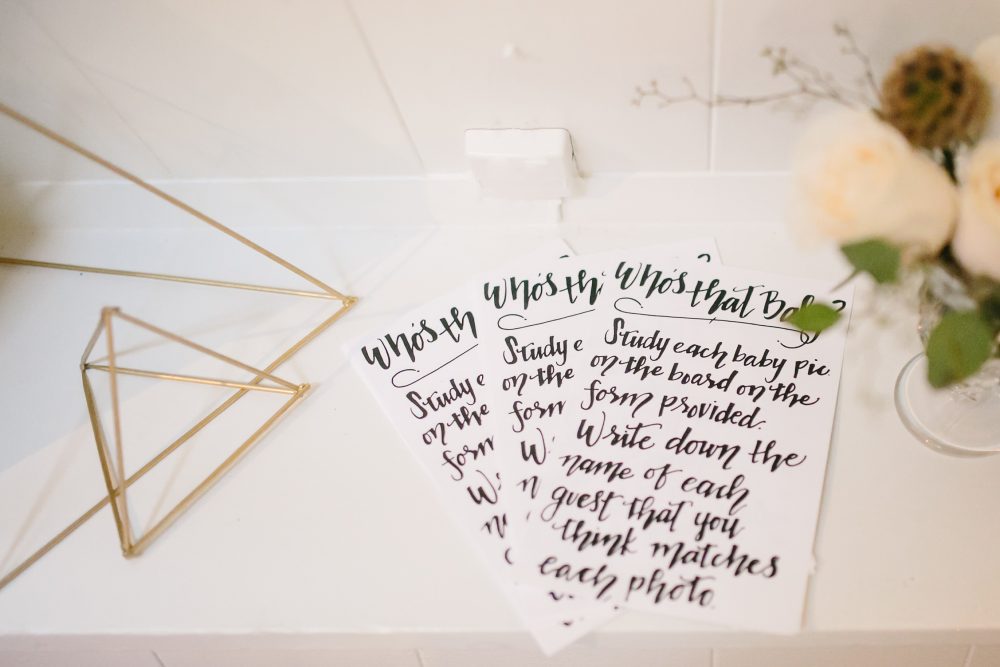 Who's th
Study e
on the
form
Wr
n
Who's th
Study e
on the
form
W
n
Who's that Baby?
Study each baby pic
on the board on the
form provided.
Write down the
name of each
guest that you
think matches
each photo.